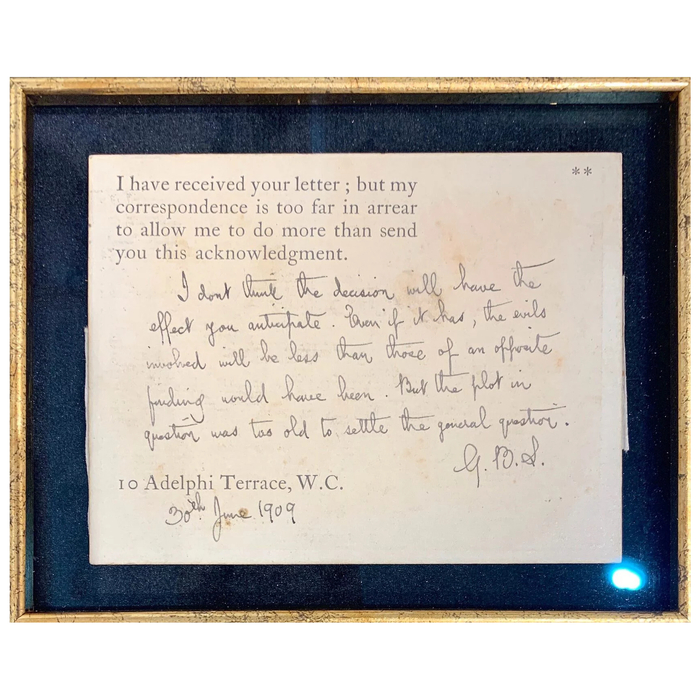 **
I have received your letter ; but my
correspondence is too far in arrear
to allow me to do more than send
you this acknowledgment.
I dont think the decision will have the
effect you anticipate. Even if it has, the evils
involved will be less than those of an opposite
finding would have been. But the plot in
question was too old to settle the general question.
G.B.S.
10 Adelphi Terrace, W.C.
30th June 1909